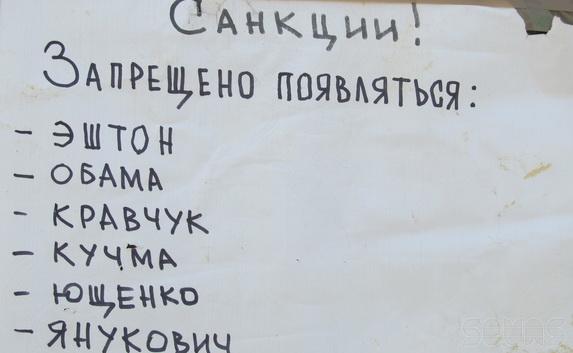 Санкции!
Запрещено появляться:
- Эштон
- Обама
- Кравчук
- Кучма
- Ющенко
- Янукович